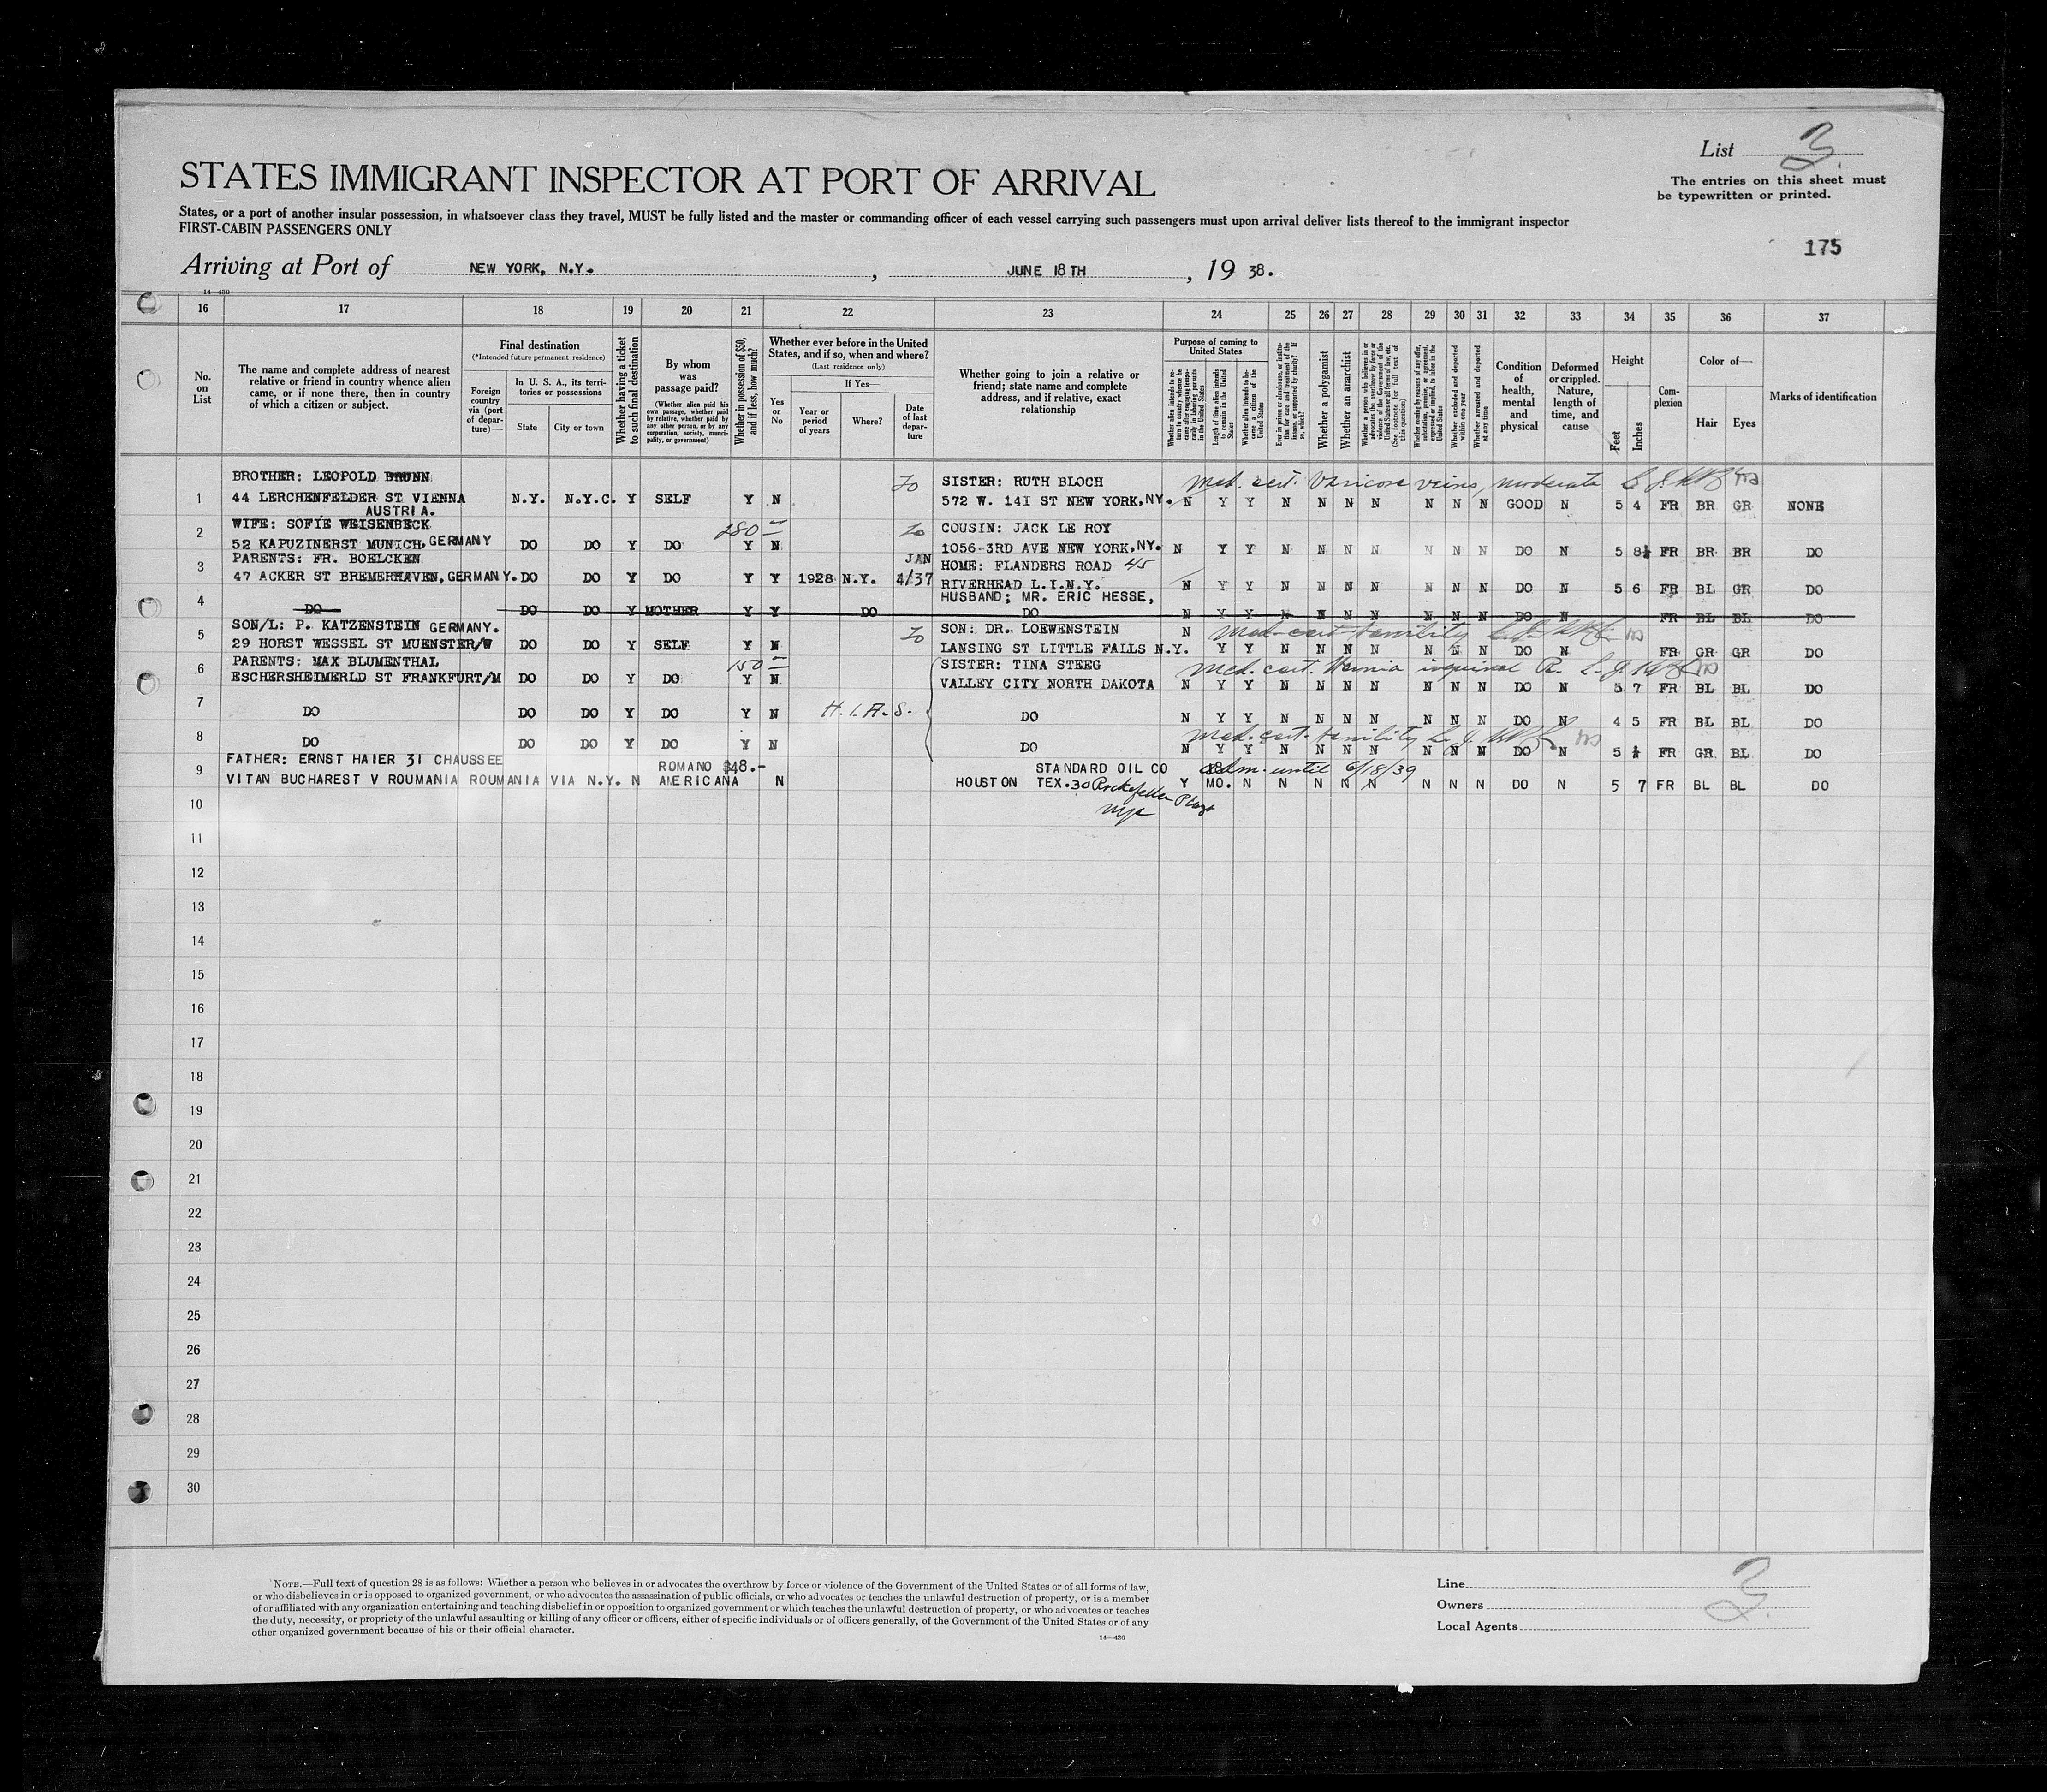 List 3.
The entries on this sheet must
be typewritten or printed.
STATES IMMIGRANT INSPECTOR AT PORT OF ARRIVAL
States, or a port of another insular possession, in whatsoever class they travel, MUST be fully listed and the master or commanding officer of each vessel carrying such passengers must upon arrival deliver lists thereof to the immigrant inspector
FIRST-CABIN PASSENGERS ONLY
175
Arriving at Port of NEW YORK, N.Y. , JUNE 18TH , 19 38.
14—430
16 17 18 19 20 21 22 23 24 25 26 27 28 29 30 31 32 33 34 35 36 37
No. on List
The name and complete address of nearest relative or friend in country whence alien came, or if none there, then in country of which a citizen or subject.
Final destination
(*Intended future permanent residence)
Foreign country via (port of departure)—
In U. S. A., its territories or possessions
State
City or town
Whether having a ticket to such final destination
By whom was passage paid?
(Whether alien paid his own passage, whether paid by relative, whether paid by any other person, or by any corporation, society, municipality, or government)
Whether in possession of $50, and if less, how much?
Whether ever before in the United States, and if so, when and where?
(Last residence only)
Yes or No
If Yes—
Year or period of years
Where?
Date of last departure
Whether going to join a relative or friend; state name and complete address, and if relative, exact relationship
Purpose of coming to United States
Whether alien intends to return to country whence he came after engaging temporarily in laboring pursuits in the United States
Length of time alien intends to remain in the United States
Whether alien intends to become a citizen of the United States
Ever in prison or almshouse, or institution for care and treatment of the insane, or supported by charity? If so, which?
Whether a polygamist
Whether an anarchist
Whether a person who believes in or advocates the overthrow by force or violence of the Government of the United States or all forms of law, etc. (See footnote for full text of this question)
Whether coming by reason of any offer, solicitation, promise, or agreement, expressed or implied, to labor in the United States
Whether excluded and deported within one year
Whether arrested and deported at any time
Condition of health, mental and physical
Deformed or crippled. Nature, length of time, and cause
Height
Feet
Inches
Complexion
Color of—
Hair
Eyes
Marks of identification
BROTHER: LEOPOLD BRUNN SISTER: RUTH BLOCH med. cert. Varicose veins, moderate
1 44 LERCHENFELDER ST VIENNA N.Y. N.Y.C. Y SELF Y N 572 W. 141 ST NEW YORK, NY. N Y Y N N N N N N N GOOD N 5 4 FR BR GR NONE
AUSTRIA.
WIFE: SOFIE WEISENBECK 280 COUSIN: JACK LE ROY
2 52 KAPUZINERST MUNICH, GERMANY DO DO Y DO Y N 1056-3RD AVE NEW YORK, NY. N Y Y N N N N N N N DO N 5 8½ FR BR BR DO
PARENTS: FR. BOELCKEN JAN HOME: FLANDERS ROAD 45
3 47 ACKER ST BREMERHAVEN, GERMANY. DO DO Y DO Y Y 1928 N.Y. 4/37 RIVERHEAD L.I.N.Y. N Y Y N N N N N N N DO N 5 6 FR BL GR DO
HUSBAND; MR. ERIC HESSE,
4 DO DO DO Y MOTHER Y Y DO DO N Y Y N N N N N N N DO N FR BL BL DO
SON/L: P. KATZENSTEIN GERMANY. SON: DR. LOEWENSTEIN N med. cert. senility
5 29 HORST WESSEL ST MUENSTER/W DO DO Y SELF Y N LANSING ST LITTLE FALLS N.Y. Y Y N N N N N N N DO N FR GR GR DO
PARENTS: MAX BLUMENTHAL 150 SISTER: TINA STEEG med. cert. Hernia inguinal R.
6 ESCHERSHEIMERLD ST FRANKFURT/M DO DO Y DO Y N VALLEY CITY NORTH DAKOTA N Y Y N N N N N N N DO N 5 7 FR BL BL DO
7 DO DO DO Y DO Y N H.I.A.S. DO N Y Y N N N N N N N DO N 4 5 FR BL BL DO
med. cert. senility
8 DO DO DO Y DO Y N DO N Y Y N N N N N N N DO N 5 ½ FR GR BL DO
FATHER: ERNST HAIER 31 CHAUSSEE ROMANO $48.- STANDARD OIL CO adm. until 6/18/39
9 VITAN BUCHAREST V ROUMANIA ROUMANIA VIA N.Y. N AMERICANA N HOUSTON TEX. 30 Rockefeller Plaza Y MO. N N N N N N N N DO N 5 7 FR BL BL DO
NYC
10
11
12
13
14
15
16
17
18
19
20
21
22
23
24
25
26
27
28
29
30
NOTE.—Full text of question 28 is as follows: Whether a person who believes in or advocates the overthrow by force or violence of the Government of the United States or of all forms of law,
or who disbelieves in or is opposed to organized government, or who advocates the assassination of public officials, or who advocates or teaches the unlawful destruction of property, or is a member
of or affiliated with any organization entertaining and teaching disbelief in or opposition to organized government or which teaches the unlawful destruction of property, or who advocates or teaches
the duty, necessity, or propriety of the unlawful assaulting or killing of any officer or officers, either of specific individuals or of officers generally, of the Government of the United States or of any
other organized government because of his or their official character.
14—430
Line
Owners
Local Agents
3.